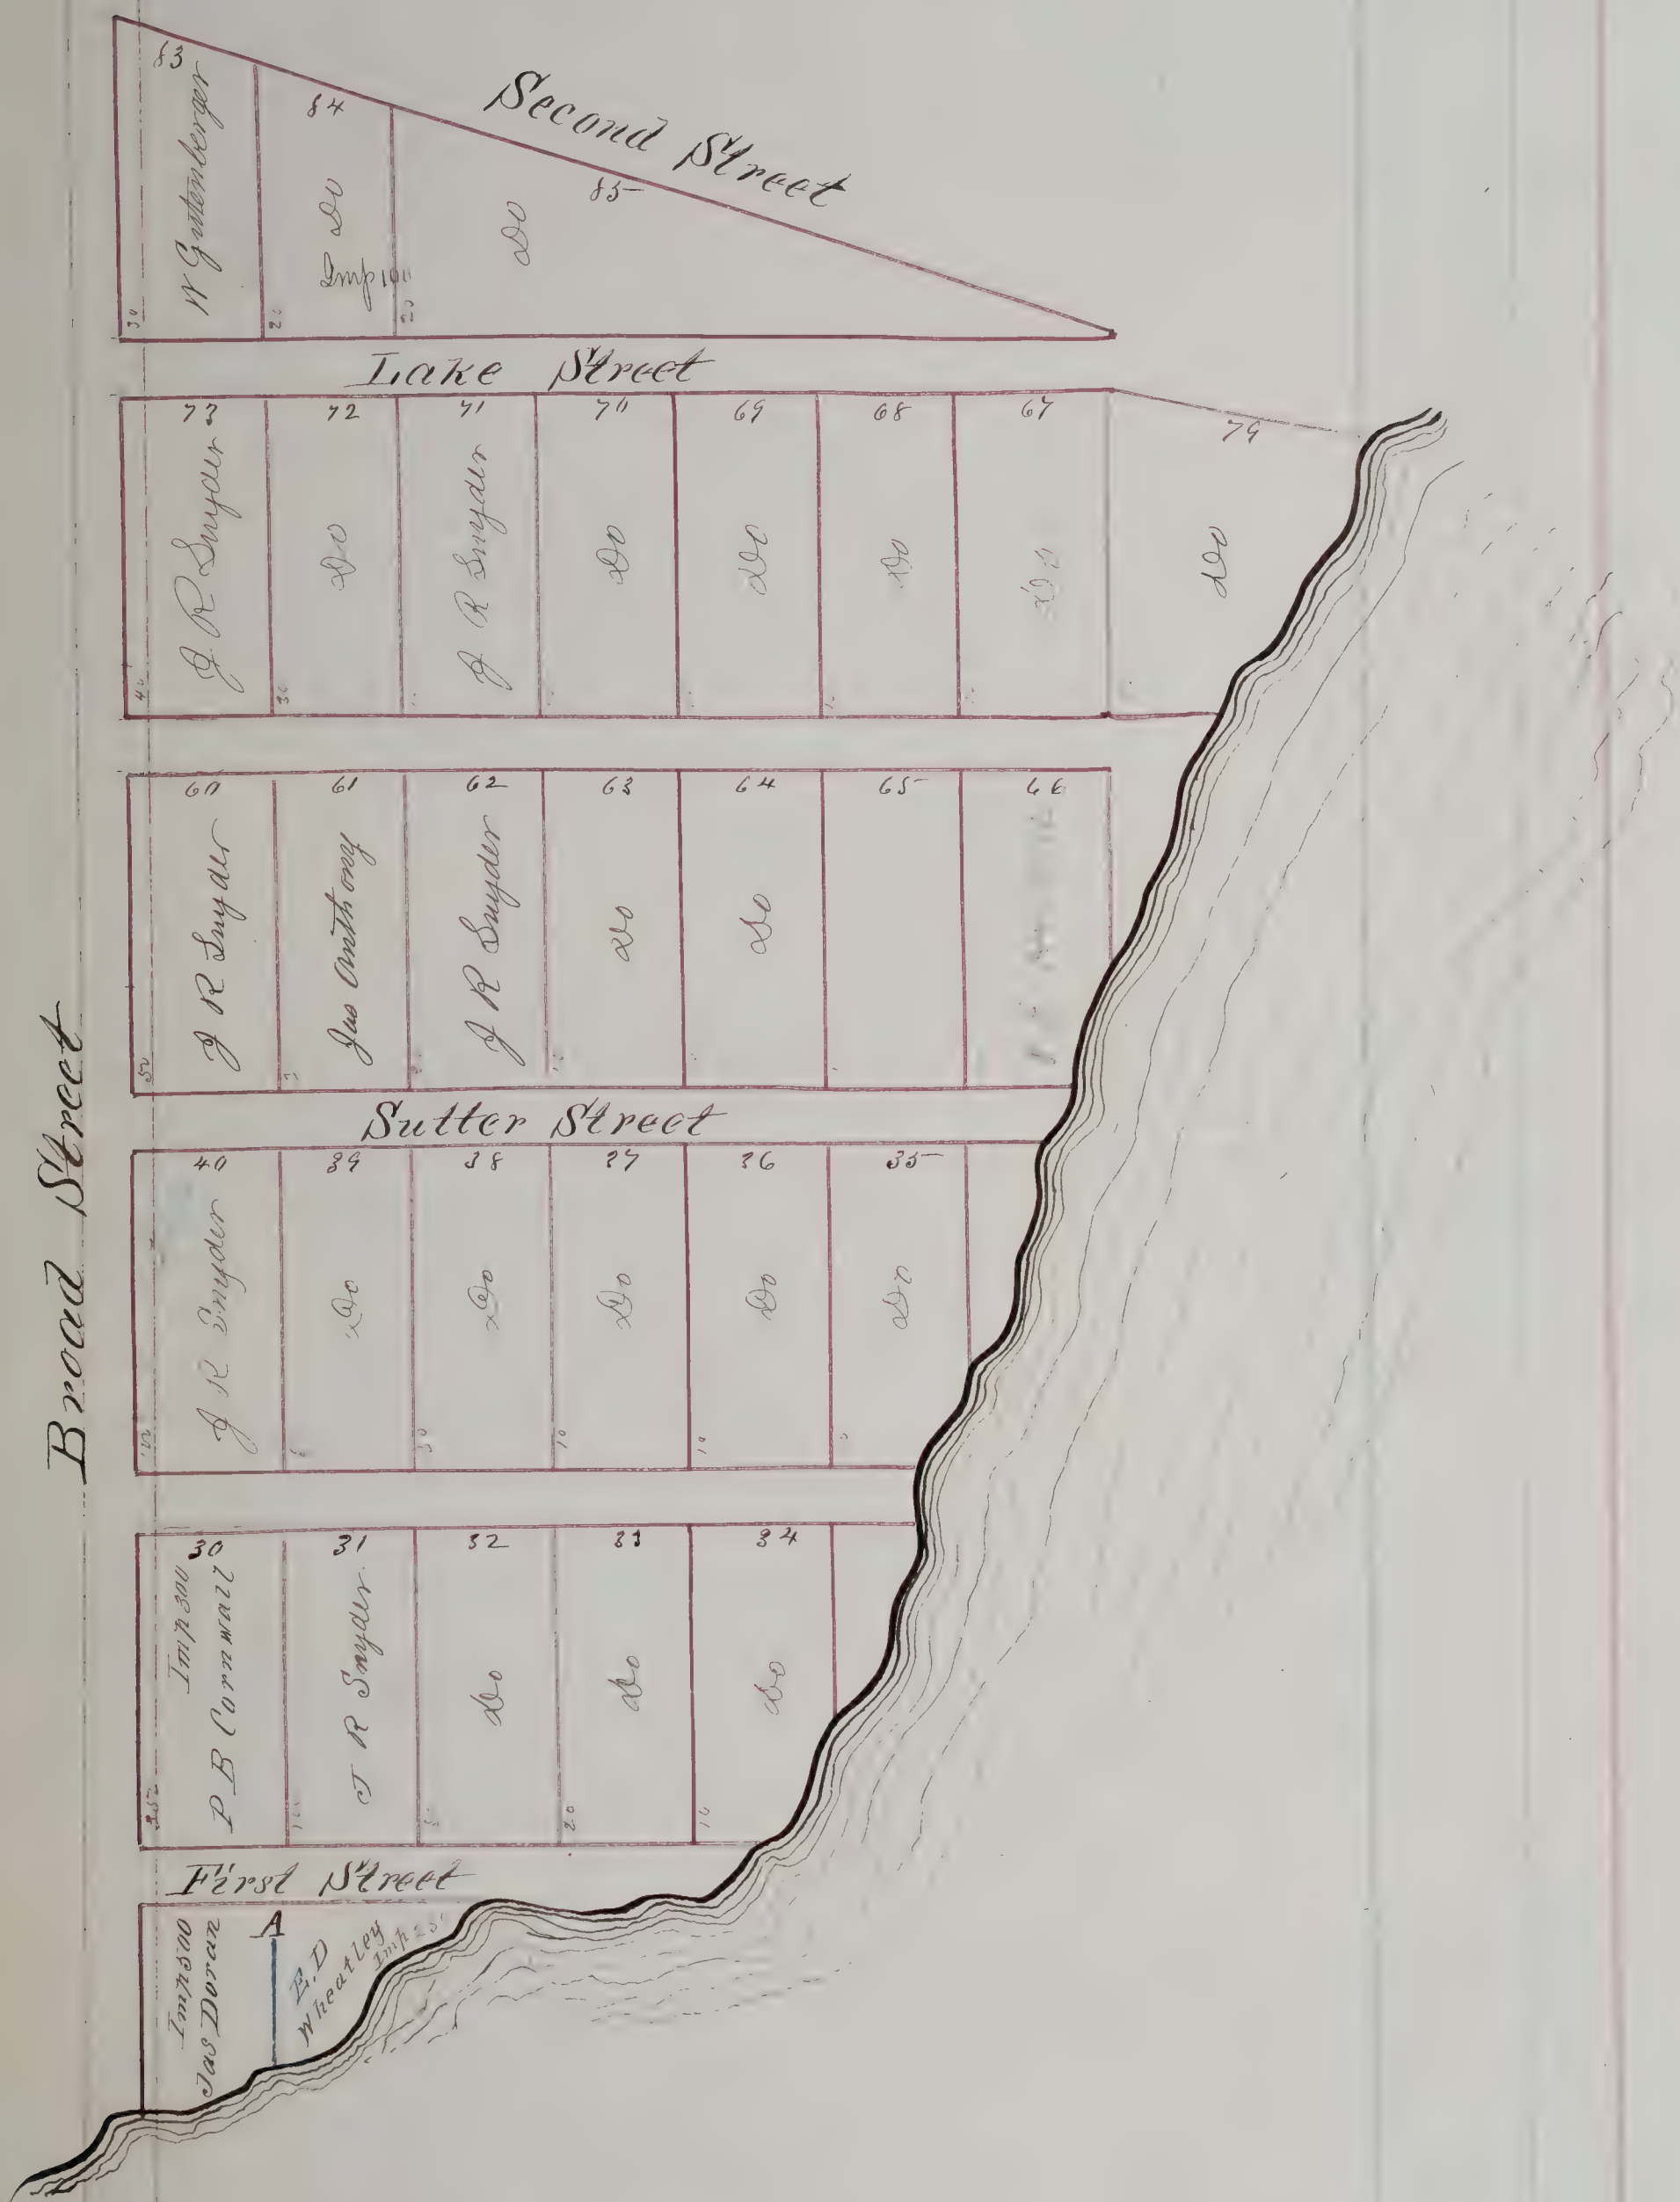 Second Street
83
W Gutenberger
30
84
Do
Imp 100
20
85
Do
20
Lake Street
73
J R Snyder
40
72
Do
30
71
J R Snyder
70
Do
69
Do
68
Do
67
Do
79
Do
60
J R Snyder
50
61
Jas Anthony
62
J R Snyder
63
Do
64
Do
65
66
Broad Street
Sutter Street
40
J R Snyder
100
39
Do
38
Do
30
37
Do
10
36
Do
10
35
Do
30
Imp 300
P B Cornwall
31
J R Snyder
32
Do
33
Do
20
34
Do
10
First Street
Imp 500
Jas Doran
A
E. D
Wheatley
Imp